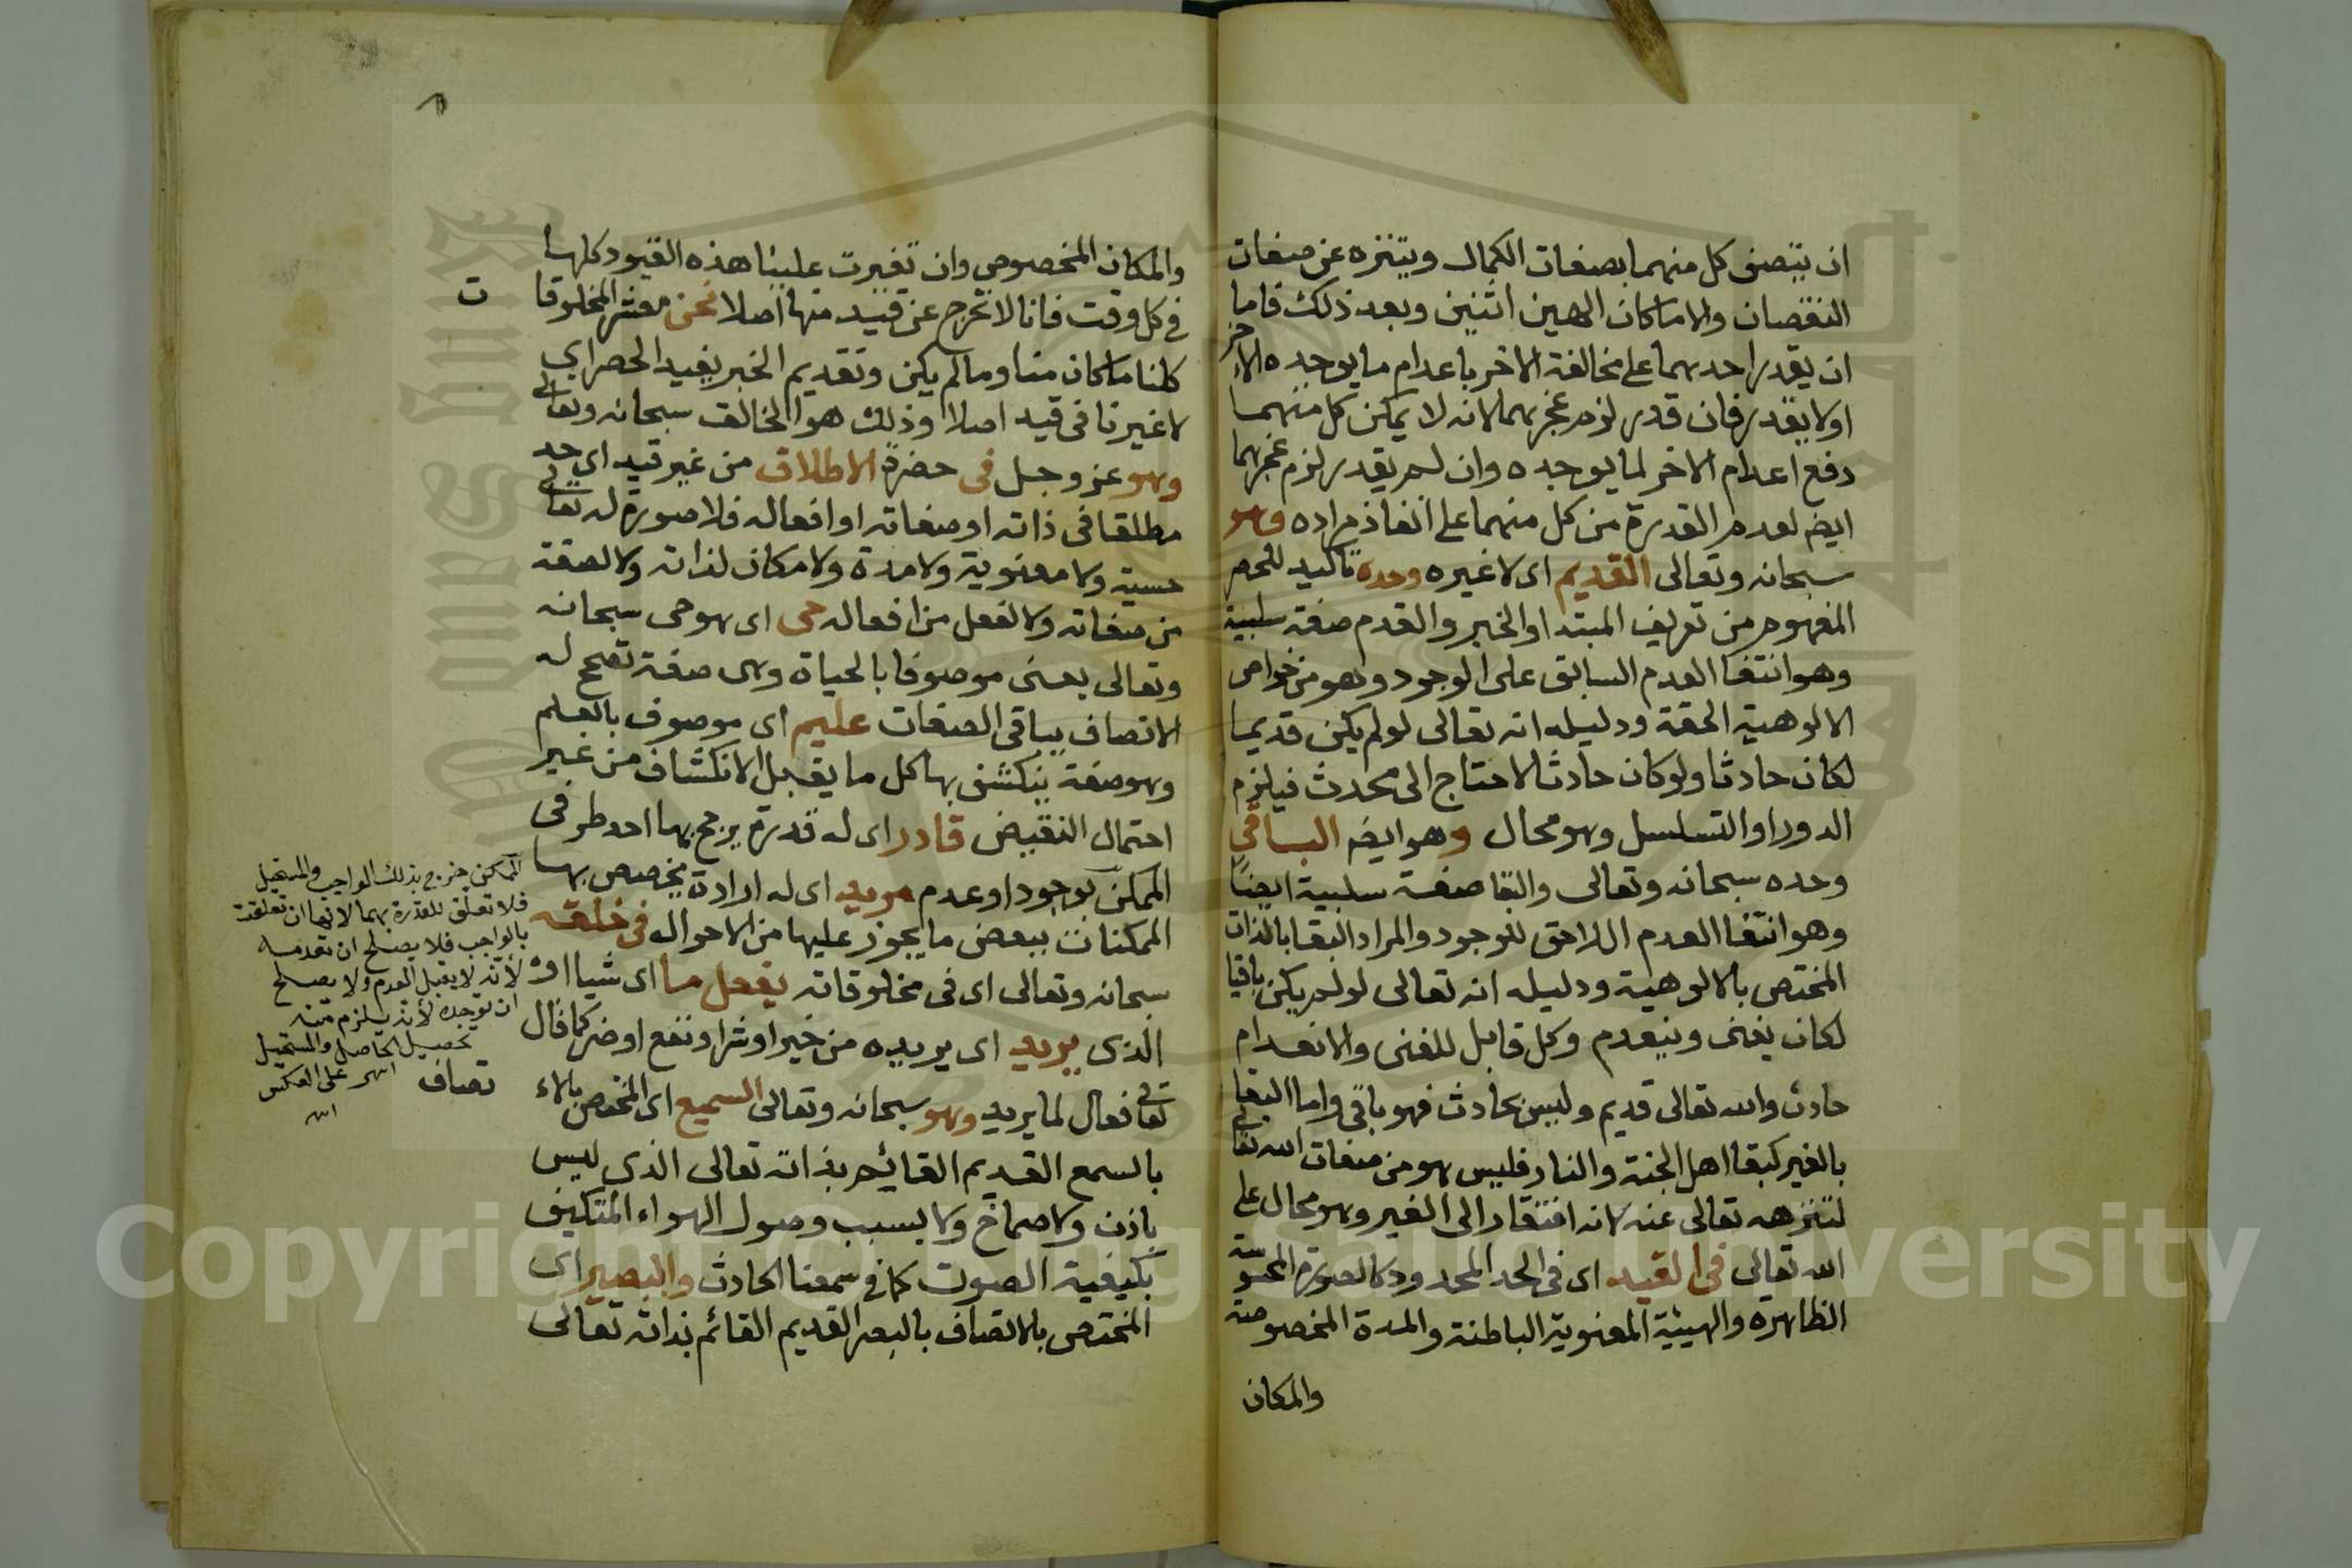 ان يتصف كل منهما بصفات الكمال ويتنزه عن صفات
النقصان والا ما كان الهين اثنين وبعد ذلك فاما
ان يقدر احدهما على مخالفة الاخر باعدام ما يوجده الاخر
اولا يقدر فان قدر لزم عجزهما لانه لا يمكن كل منهما
دفع اعدام الاخر لما يوجده وان لم يقدر لزم عجزهما
ايضا لعدم القدرة من كل منهما على انفاذ مراده وهو
سبحانه وتعالى القديم اى لا غيره وحده تاكيد للحصر
المفهوم من تعريف المبتدا والخبر والقدم صفة سلبية
وهو انتفا العدم السابق على الوجود وهو من خواص
الالوهية الحقة ودليله انه تعالى لو لم يكن قديما
لكان حادثا ولو كان حادثا لاحتاج الى محدث فيلزم
الدور او التسلسل وهو محال وهو ايضا الباقي
وحده سبحانه وتعالى والبقا صفة سلبية ايضًا
وهو انتفا العدم اللاحق للوجود والمراد البقا بالذات
المختص بالالوهية ودليله انه تعالى لو لم يكن باقيا
لكان يفنى وينعدم وكل قابل للفنى والانعدام
حادث والله تعالى قديم وليس بحادث فهو باقي واما البقا
بالغير كبقا اهل الجنة والنار فليس هو من صفات الله تعالى
لتنزهه تعالى عنه لانه افتقار الى الغير وهو محال على
الله تعالى فى القيد اى فى الحد المحدود كالصورة المحسوسة
الظاهرة والهيئية المعنوية الباطنة والمدة المخصوصة
والمكان
٨
والمكان المخصوص وان تغيرت علينا هذه القيود كلها
في كل وقت فانا لا نخرج عن قيد منها اصلا نحن معشر المخلوقات
كلنا ما كان منا وما لم يكن وتقديم الخبر يفيد الحصر اي
لا غيرنا فى قيد اصلا وذلك هو الخالق سبحانه وتعالى
وهو عز وجل فى حضرة الاطلاق من غير قيد اى حد
مطلقا فى ذاته او صفاته او افعاله فلا صورة له تعالى
حسية ولا معنوية ولا مدة ولا مكان لذاته ولا لصفة
من صفاته ولا لفعل من افعاله حى اى هو حى سبحانه
وتعالى يعنى موصوفا بالحياة وهى صفة تصحح له
الاتصاف بباقى الصفات عليم اى موصوف بالعلم
وهو صفة ينكشف بها كل ما يقبل الانكشاف من غير
احتمال النقيض قادر اى له قدرة يرجح بها احد طرفى
الممكن بوجود او عدم مريد اى له ارادة يخصص بها
الممكنات ببعض ما يجوز عليها من الاحوال فى خلقه
سبحانه وتعالى اى فى مخلوقاته يفعل ما اى شيا او
الذى يريد اى يريده من خير او شر او نفع او ضر كما قال
تعالى فعال لما يريد وهو سبحانه وتعالى السميع اى المختص بالا
تصاف
بالسمع القديم القائم بذاته تعالى الذي ليس
باذن ولا صماخ ولا بسبب وصول الهواء المتكيف
بكيفية الصوت كما في سمعنا الحادث والبصير اى
المختص بالاتصاف بالبصر القديم القائم بذاته تعالى
الممكن خرج بذلك الواجب والمستحيل
فلا تعلق للقدرة بهما لانها ان تعلقت
بالواجب فلا يصلح ان تعدمه
لأنه لا يقبل العدم ولا يصلح
ان توجده لأنه يلزم منه
تحصيل الحاصل والمستحيل
على العكس